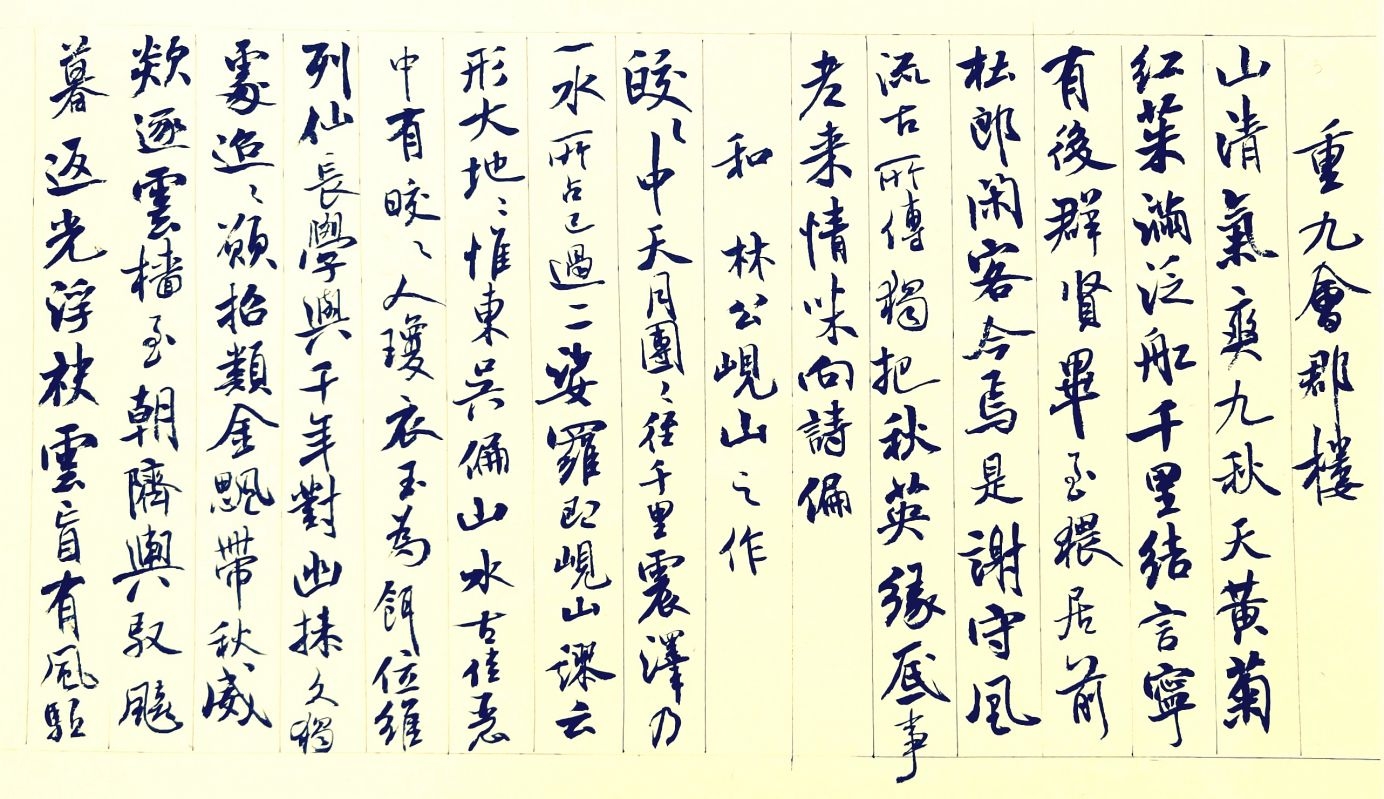 重九會郡樓
山清氣爽九秋天黃菊
紅茱滿泛船千里結言寧
有後群賢畢至猥居前
杜郎閑客今焉是謝守風
流古所傳獨把秋英緣底事
老來情味向詩偏
和林公峴山之作
皎〻中天月團〻徑千里震澤乃
一水所占已過二娑羅即峴山謬云
形大地〻惟東吳偏山水古佳麗
中有皎〻人瓊衣玉為餌位維
列仙長學與千年對幽操久獨
處迨〻願招類金飈帶秋威
欻逐雲檣至朝隮輿馭飈
暮返光浮袂雲盲有風馭